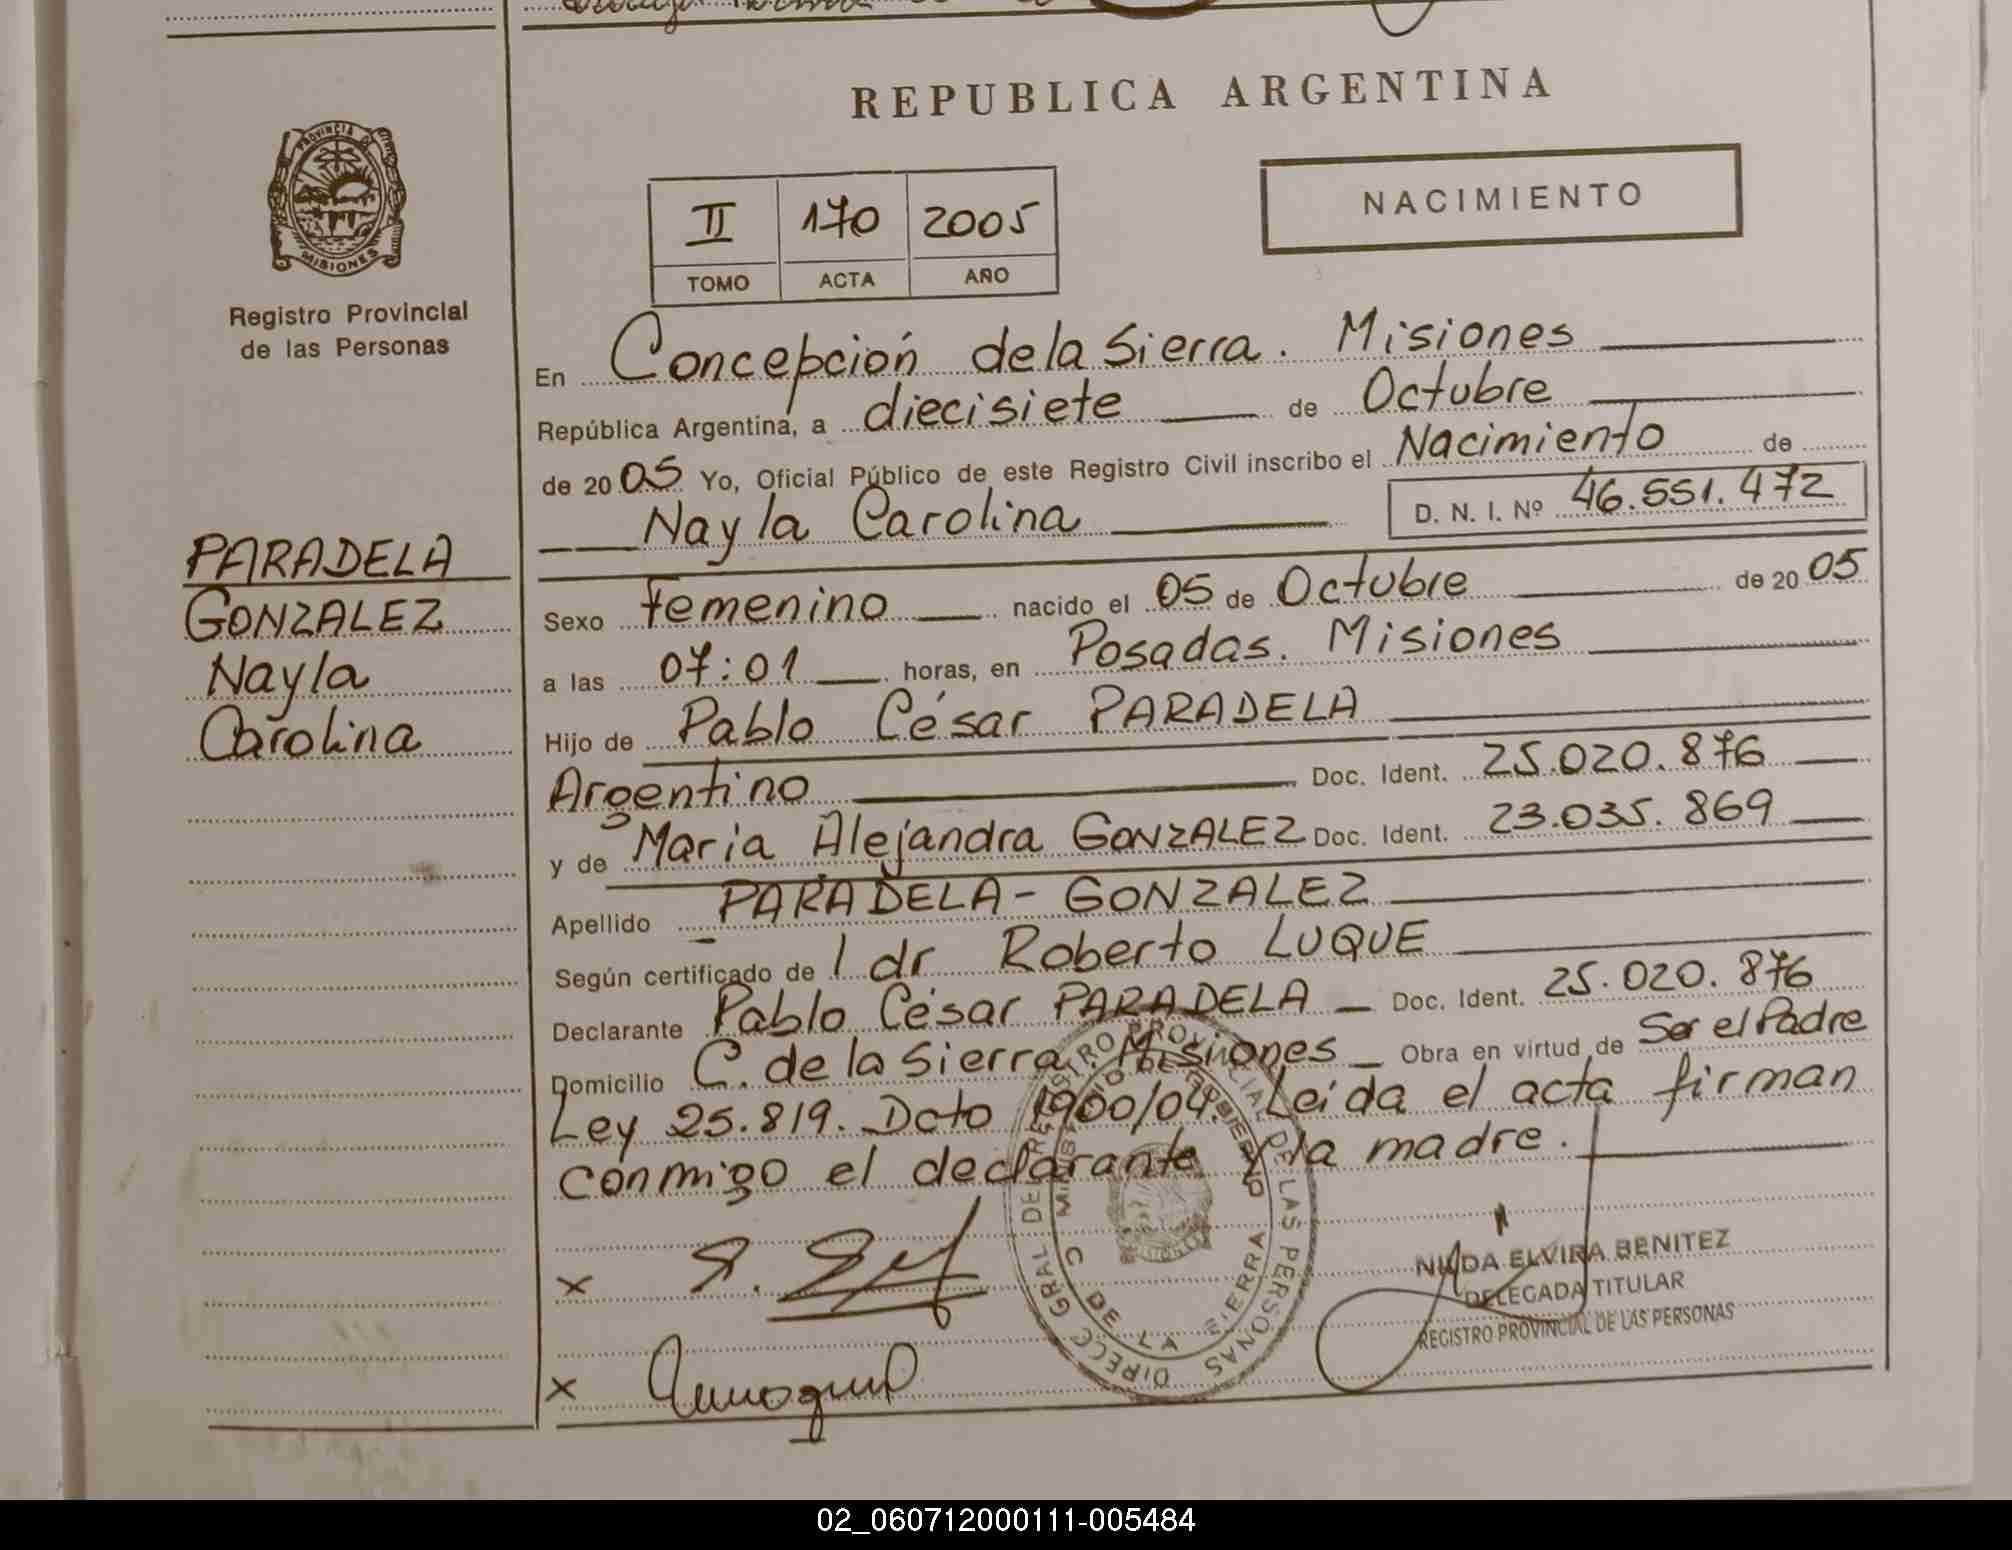 REPUBLICA ARGENTINA
PROVINCIA DE
MISIONES
Registro Provincial
de las Personas
II 170 2005
TOMO ACTA AÑO
NACIMIENTO
En Concepción de la Sierra. Misiones
República Argentina, a diecisiete de Octubre
de 2005 Yo, Oficial Público de este Registro Civil inscribo el Nacimiento de
Nayla Carolina D. N. I. Nº 46.551.472
PARADELA
GONZALEZ
Nayla
Carolina
Sexo Femenino nacido el 05 de Octubre de 2005
a las 07:01 horas, en Posadas. Misiones
Hijo de Pablo César PARADELA
Argentino Doc. Ident. 25.020.876
y de Maria Alejandra GONZALEZ Doc. Ident. 23.035.869
Apellido PARADELA - GONZALEZ
Según certificado de l dr Roberto LUQUE
Declarante Pablo César PARADELA Doc. Ident. 25.020.876
Domicilio C. de la Sierra. Misiones Obra en virtud de Ser el Padre
Ley 25.819. Dcto 1900/04. Leida el acta firman
conmigo el declarante y la madre.
DIRECC GRAL DE REGISTRO PROVINCIAL DE LAS PERSONAS
C DE LA SIERRA
NILDA ELVIRA BENITEZ
DELEGADA TITULAR
REGISTRO PROVINCIAL DE LAS PERSONAS
x
x
02_060712000111-005484